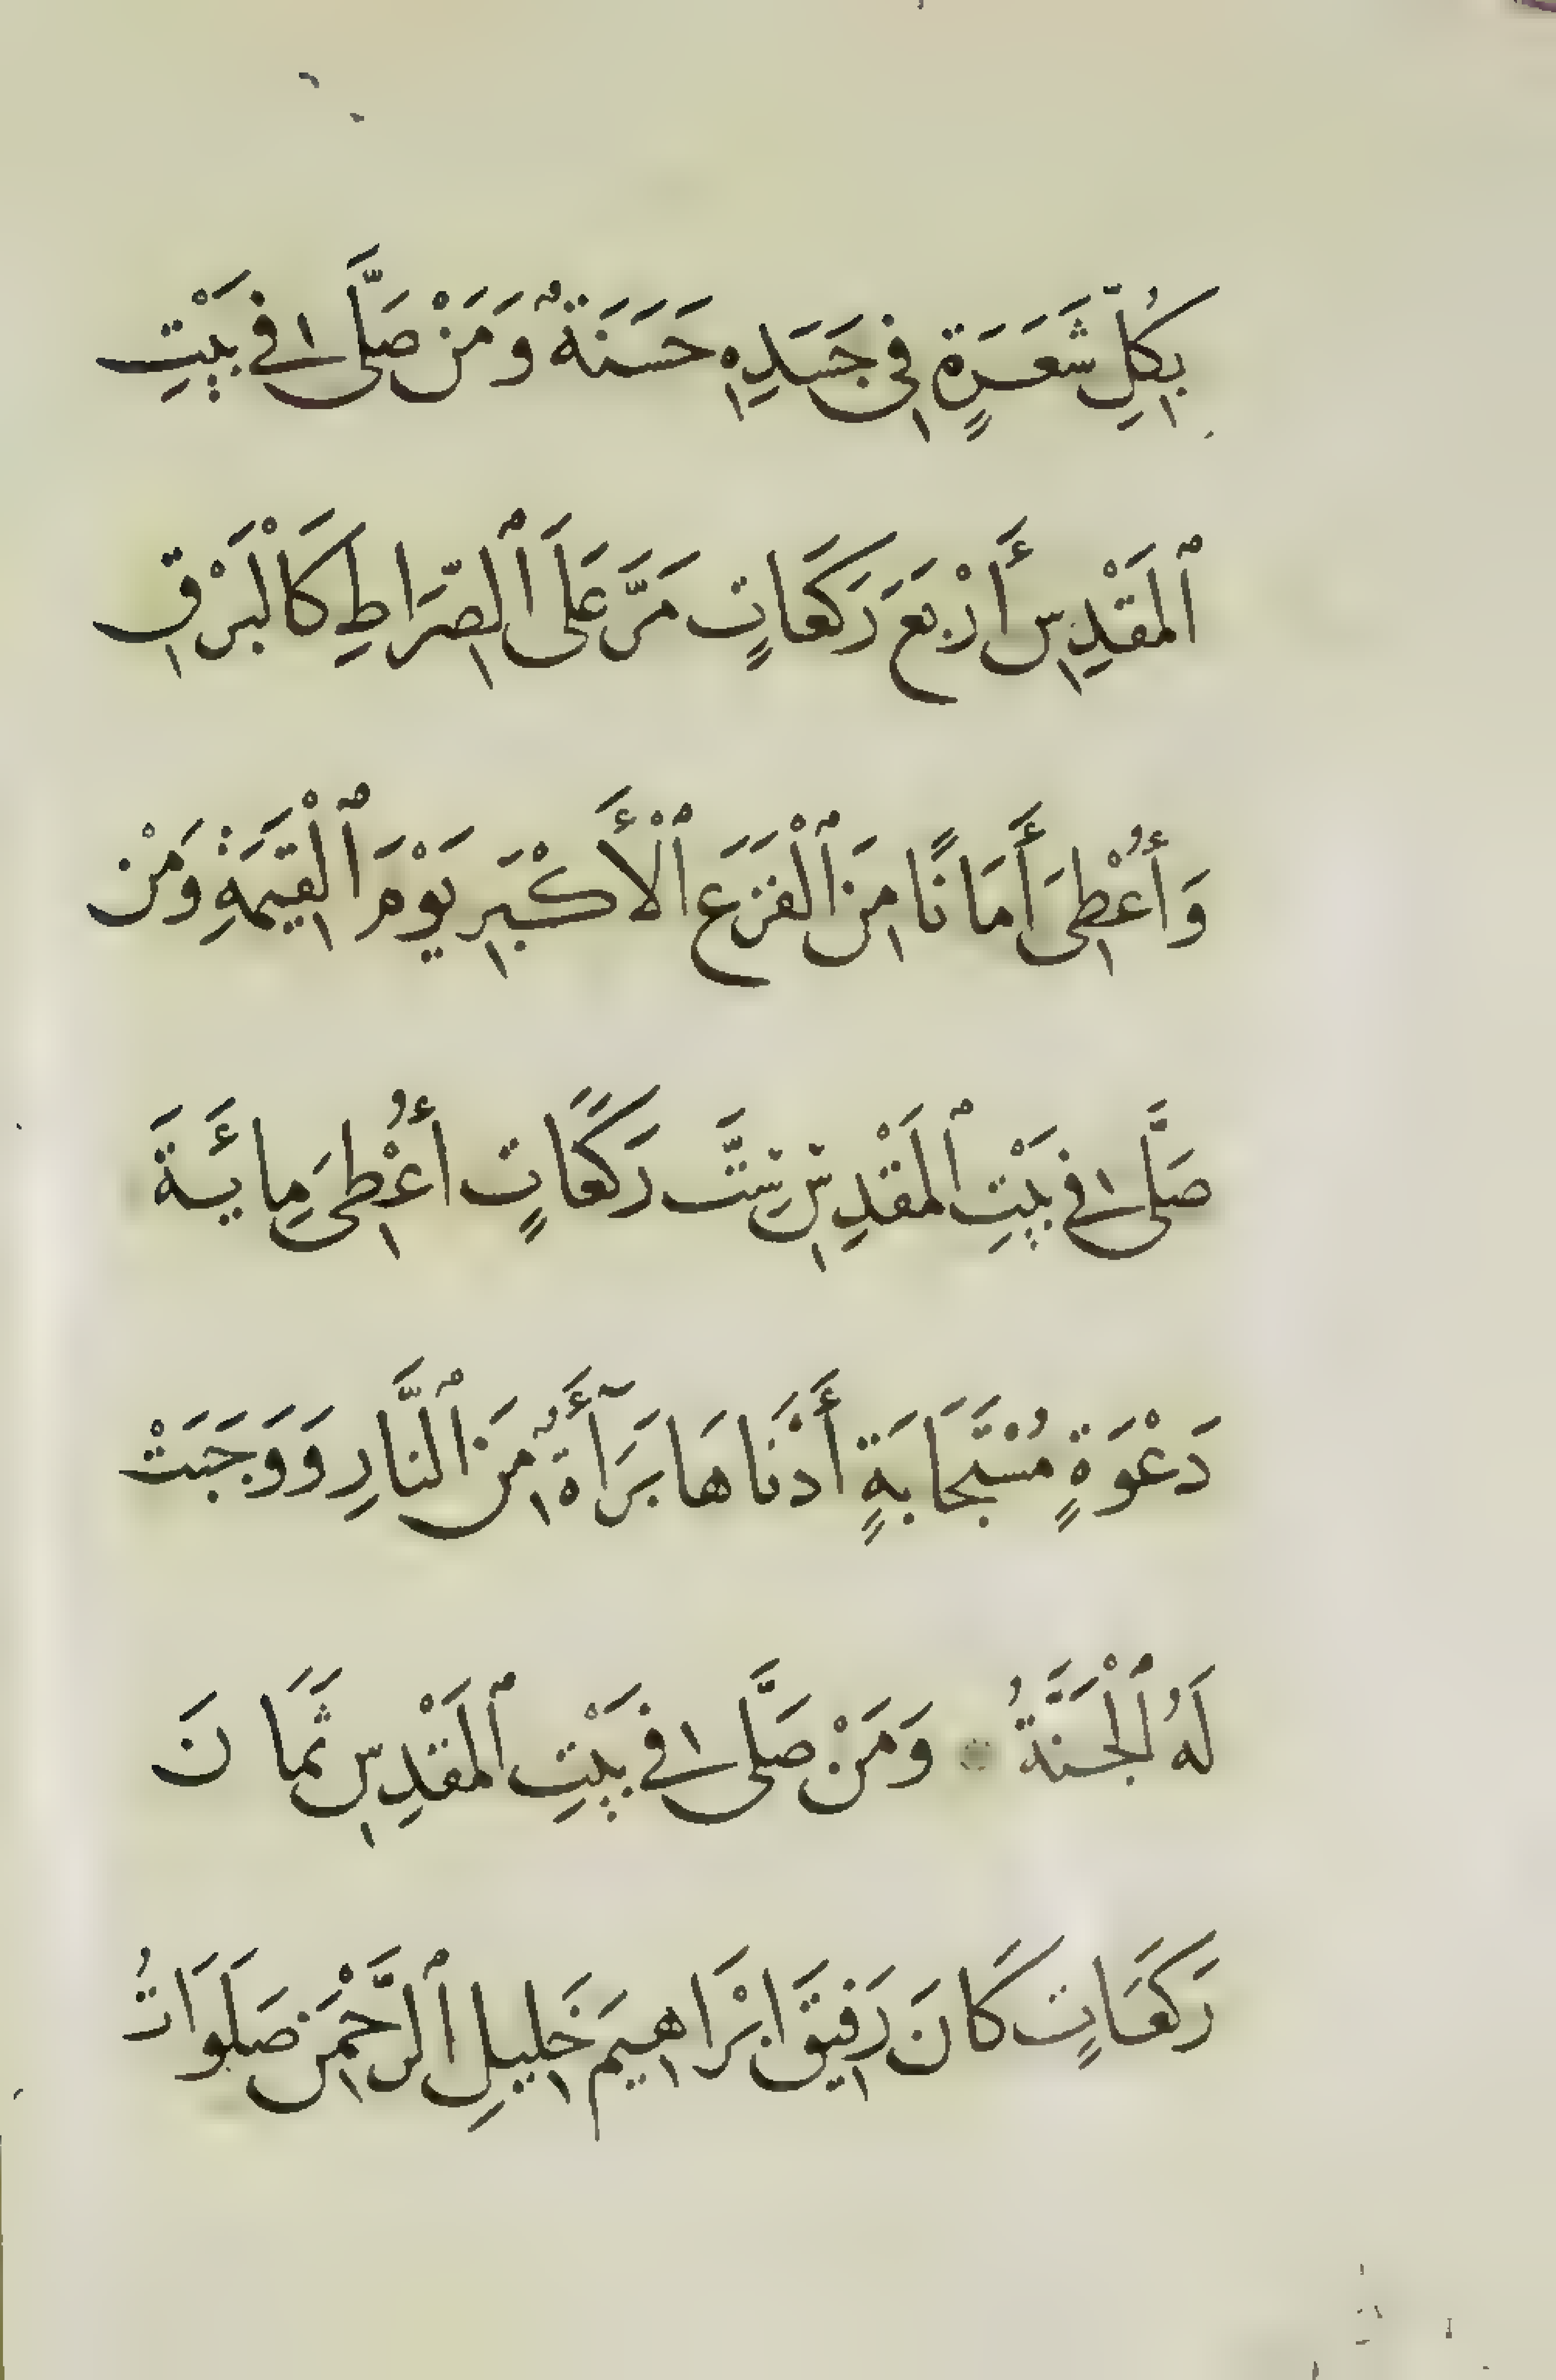 بِكُلِّ شَعَرَةٍ فِى جَسَدِهِ حَسَنَةٌ وَمَنْ صَلَّى فِى بَيْتِ
ٱلْمَقْدِسِ أَرْبَعَ رَكَعَاتٍ مَرَّ عَلَى ٱلصِّرَاطِ كَالْبَرْقِ
وَأُعْطِىَ أَمَانًا مِنَ ٱلْفَزَعِ ٱلْأَكْبَرِ يَوْمَ ٱلْقِيَمَةِ وَمَنْ
صَلَّى فِى بَيْتِ ٱلْمَقْدِسِ سِتَّ رَكَعَاتٍ أُعْطِىَ مِايَةَ
دَعْوَةٍ مُسْتَجَابَةٍ أَدْنَاهَا بَرَآءَةٌ مِنَ ٱلنَّارِ وَوَجَبَتْ
لَهُ ٱلْجَنَّةُ وَمَنْ صَلَّى فِى بَيْتِ ٱلْمَقْدِسِ ثَمَانَ
رَكَعَاتٍ كَانَ رَفِيقَ إِبْرَاهِيمَ خَلِيلِ ٱلرَّحْمَنِ صَلَوَاتُ